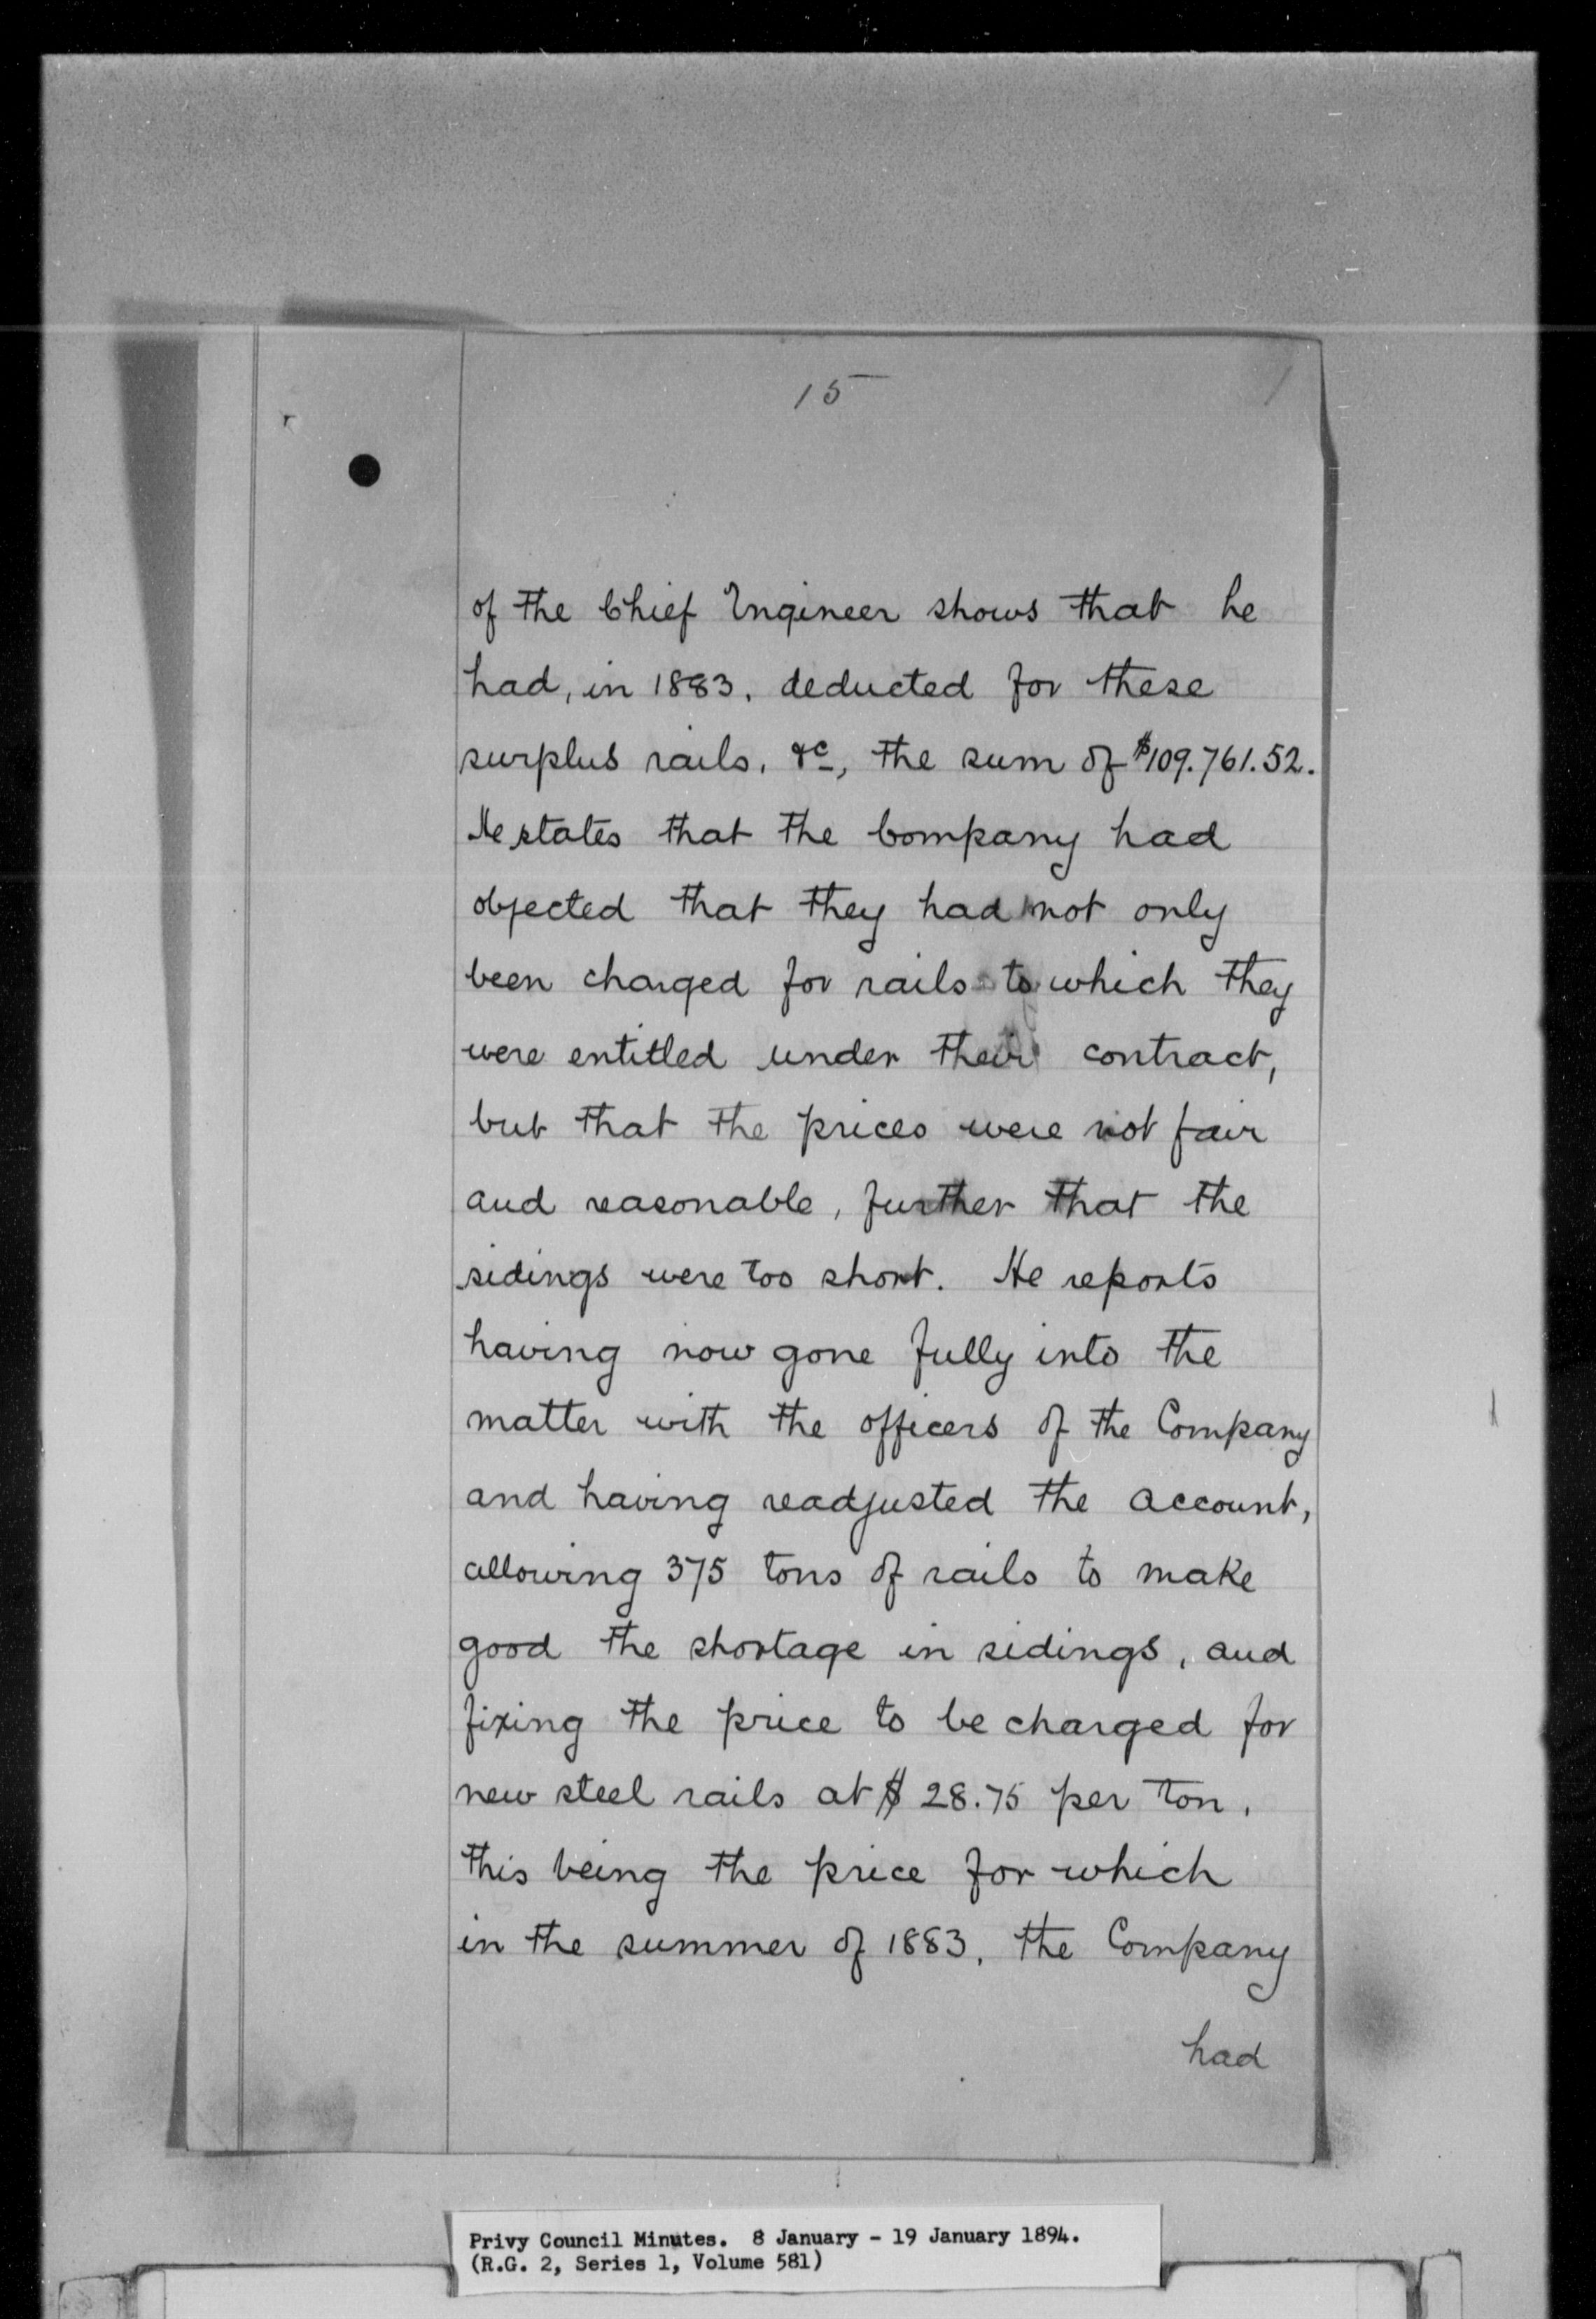 15
of the Chief Engineer shows that he
had, in 1883, deducted for these
surplus rails, &c, the sum of $109.761.52.
He states that the Company had
objected that they had not only
been charged for rails to which they
were entitled under their contract,
but that the prices were not fair
and reasonable, further that the
sidings were too short. He reports
having now gone fully into the
matter with the officers of the Company
and having readjusted the account,
allowing 375 tons of rails to make
good the shortage in sidings, and
fixing the price to be charged for
new steel rails at $28.75 per ton,
this being the price for which
in the summer of 1883, the Company
had
Privy Council Minutes. 8 January - 19 January 1894.
(R.G. 2, Series 1, Volume 581)